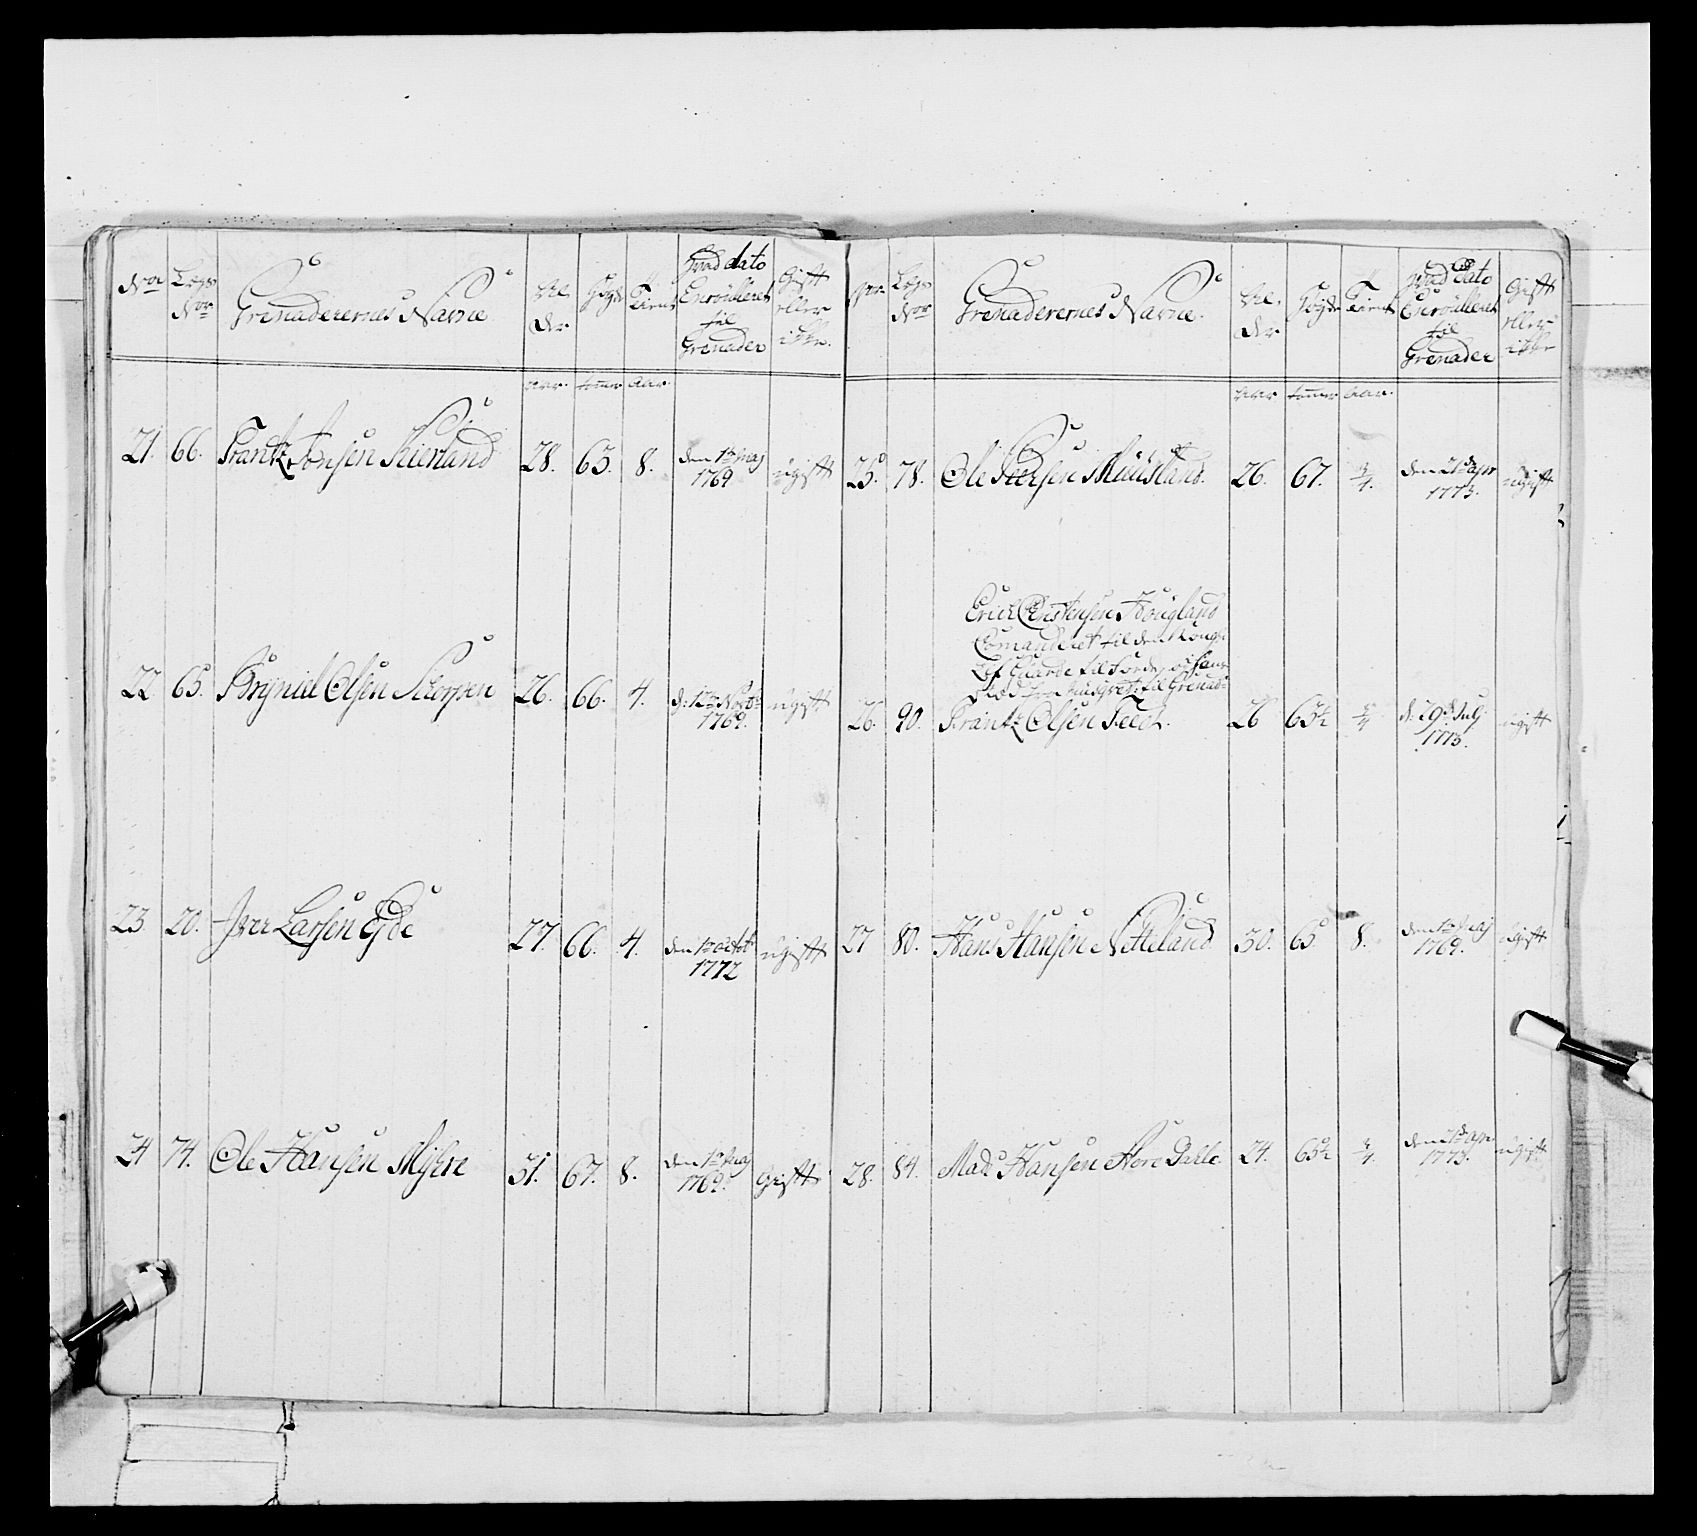 Nor Lægs Nor Grenaderernes Navne Al der Høyde Tient Hvad dato Enroulleret til Grenader Gift eller ikke.
aar. tomer aar.
21. 66. Frantz Tonsen Kierland 28. 65. 8. den 1te Maj 1769 ugift
22 65. Bryniel Olsen Skorpen 26. 66. 4. d: 12te Novbr 1769. ugift
23 20. Iver Larsen Eyde 27. 66. 4. den 1te octob 1772 ugift
24 74. Ole Hansen Myhre 31. 67. 8. den 1te Maj 1769. Gift
Nor Lægs Nor Grenaderernes Navne. Al. der Høyde Tient Hvad dato Enroulleret til Grenader Gift eller ikke
aar tomer aar.
25. 78. Ole Iversen Muusland. 26. 67. 3/4. den 21de apr 1773. ugift
Erich Christensen Hougland
Comanderet til den Kongl:
Lif Guarde til
til Grenad:
26. 90. Frantz Olsen Feed. 26 65½ d: 29de Julj 1773. ugift
27 80. Hans Hansen Netteland 30. 65 8. den 1te Maj 1769. ugift
28. 84. Mads Hansen Dahle 24. 65½ 3/4. den 21de apr 1773. ugift